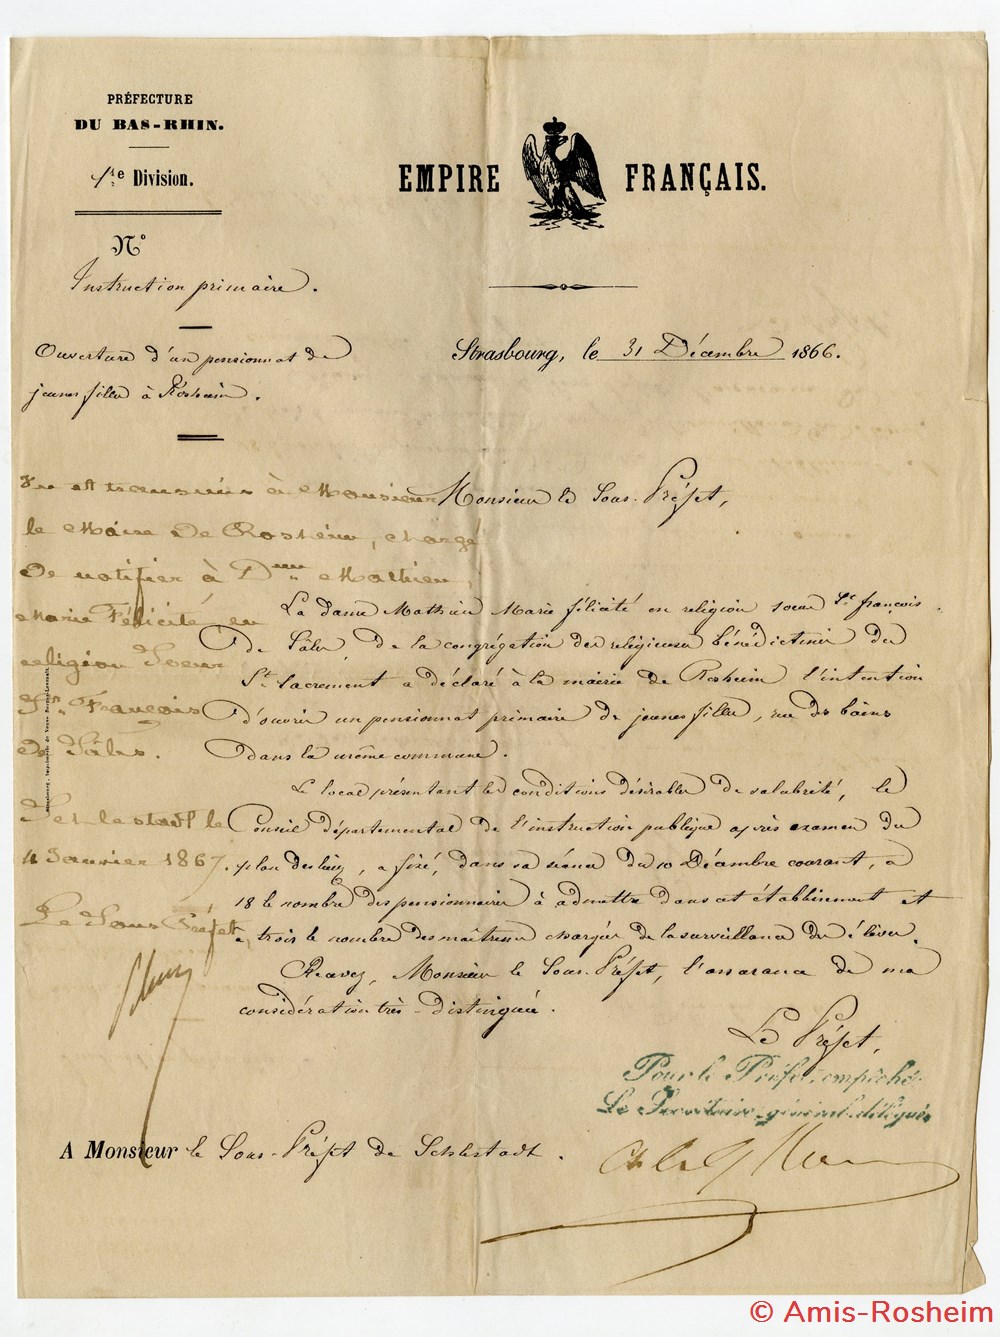 PRÉFECTURE
DU BAS-RHIN.
1re Division.
EMPIRE FRANÇAIS.
N°
Instruction primaire.
Ouverture d'un pensionnat de
jeunes filles à Rosheim.
Strasbourg, le 31 Décembre 1866.
Monsieur le Sous-Préfet,
La dame Mathieu Marie félicité en religion soeur St. françois
de Sales de la congrégation des religieuses bénédictines du
St. Sacrément a déclaré à la mairie de Rosheim l'intention
d'ouvrir un pensionnat primaire de jeunes filles, rue des bains
dans la même commune.
Le local présentant les conditions désirables de salubrité, le
Conseil départemental de l'instruction publique après examen du
plan des lieux, a fixé, dans sa séance du 10 Décembre courant, à
18 le nombre des pensionnaires à admettre dans cet établissement et
à trois le nombre des maîtresses chargées de la surveillance des élèves.
Recevez, Monsieur le Sous-Préfet, l'assurance de ma
considération très-distinguée.
Le Préfet,
Pour le Préfet empêché
Le Secrétaire-général délégué
A Monsieur le Sous-Préfet de Schlestadt.
Vu et transmis à Monsieur
le Maire de Rosheim, chargé
de notifier à Dme Mathieu,
Marie Félicité, en
religion Soeur
St. François
de Sales.
Schlestadt le
4 Janvier 1867.
Le Sous Préfet,
© Amis-Rosheim